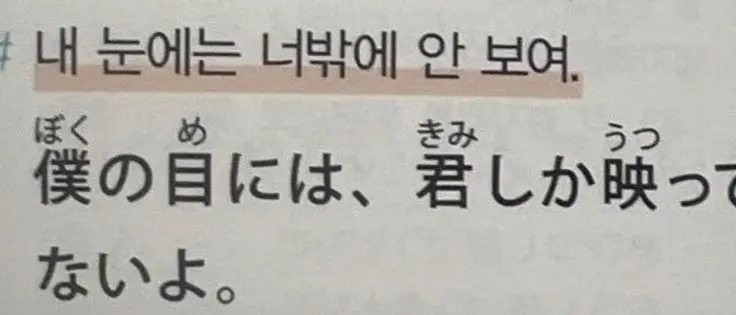 # 내 눈에는 너밖에 안 보여.
ぼく め きみ うつ
僕の目には、君しか映って
ないよ。